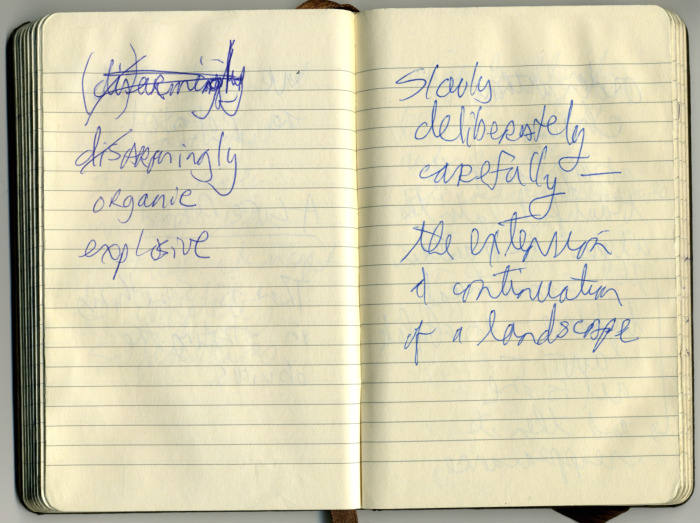 (disarmingly)
disarmingly
organic
explosive
Slowly
deliberately
carefully —
the extension
& continuation
of a landscape